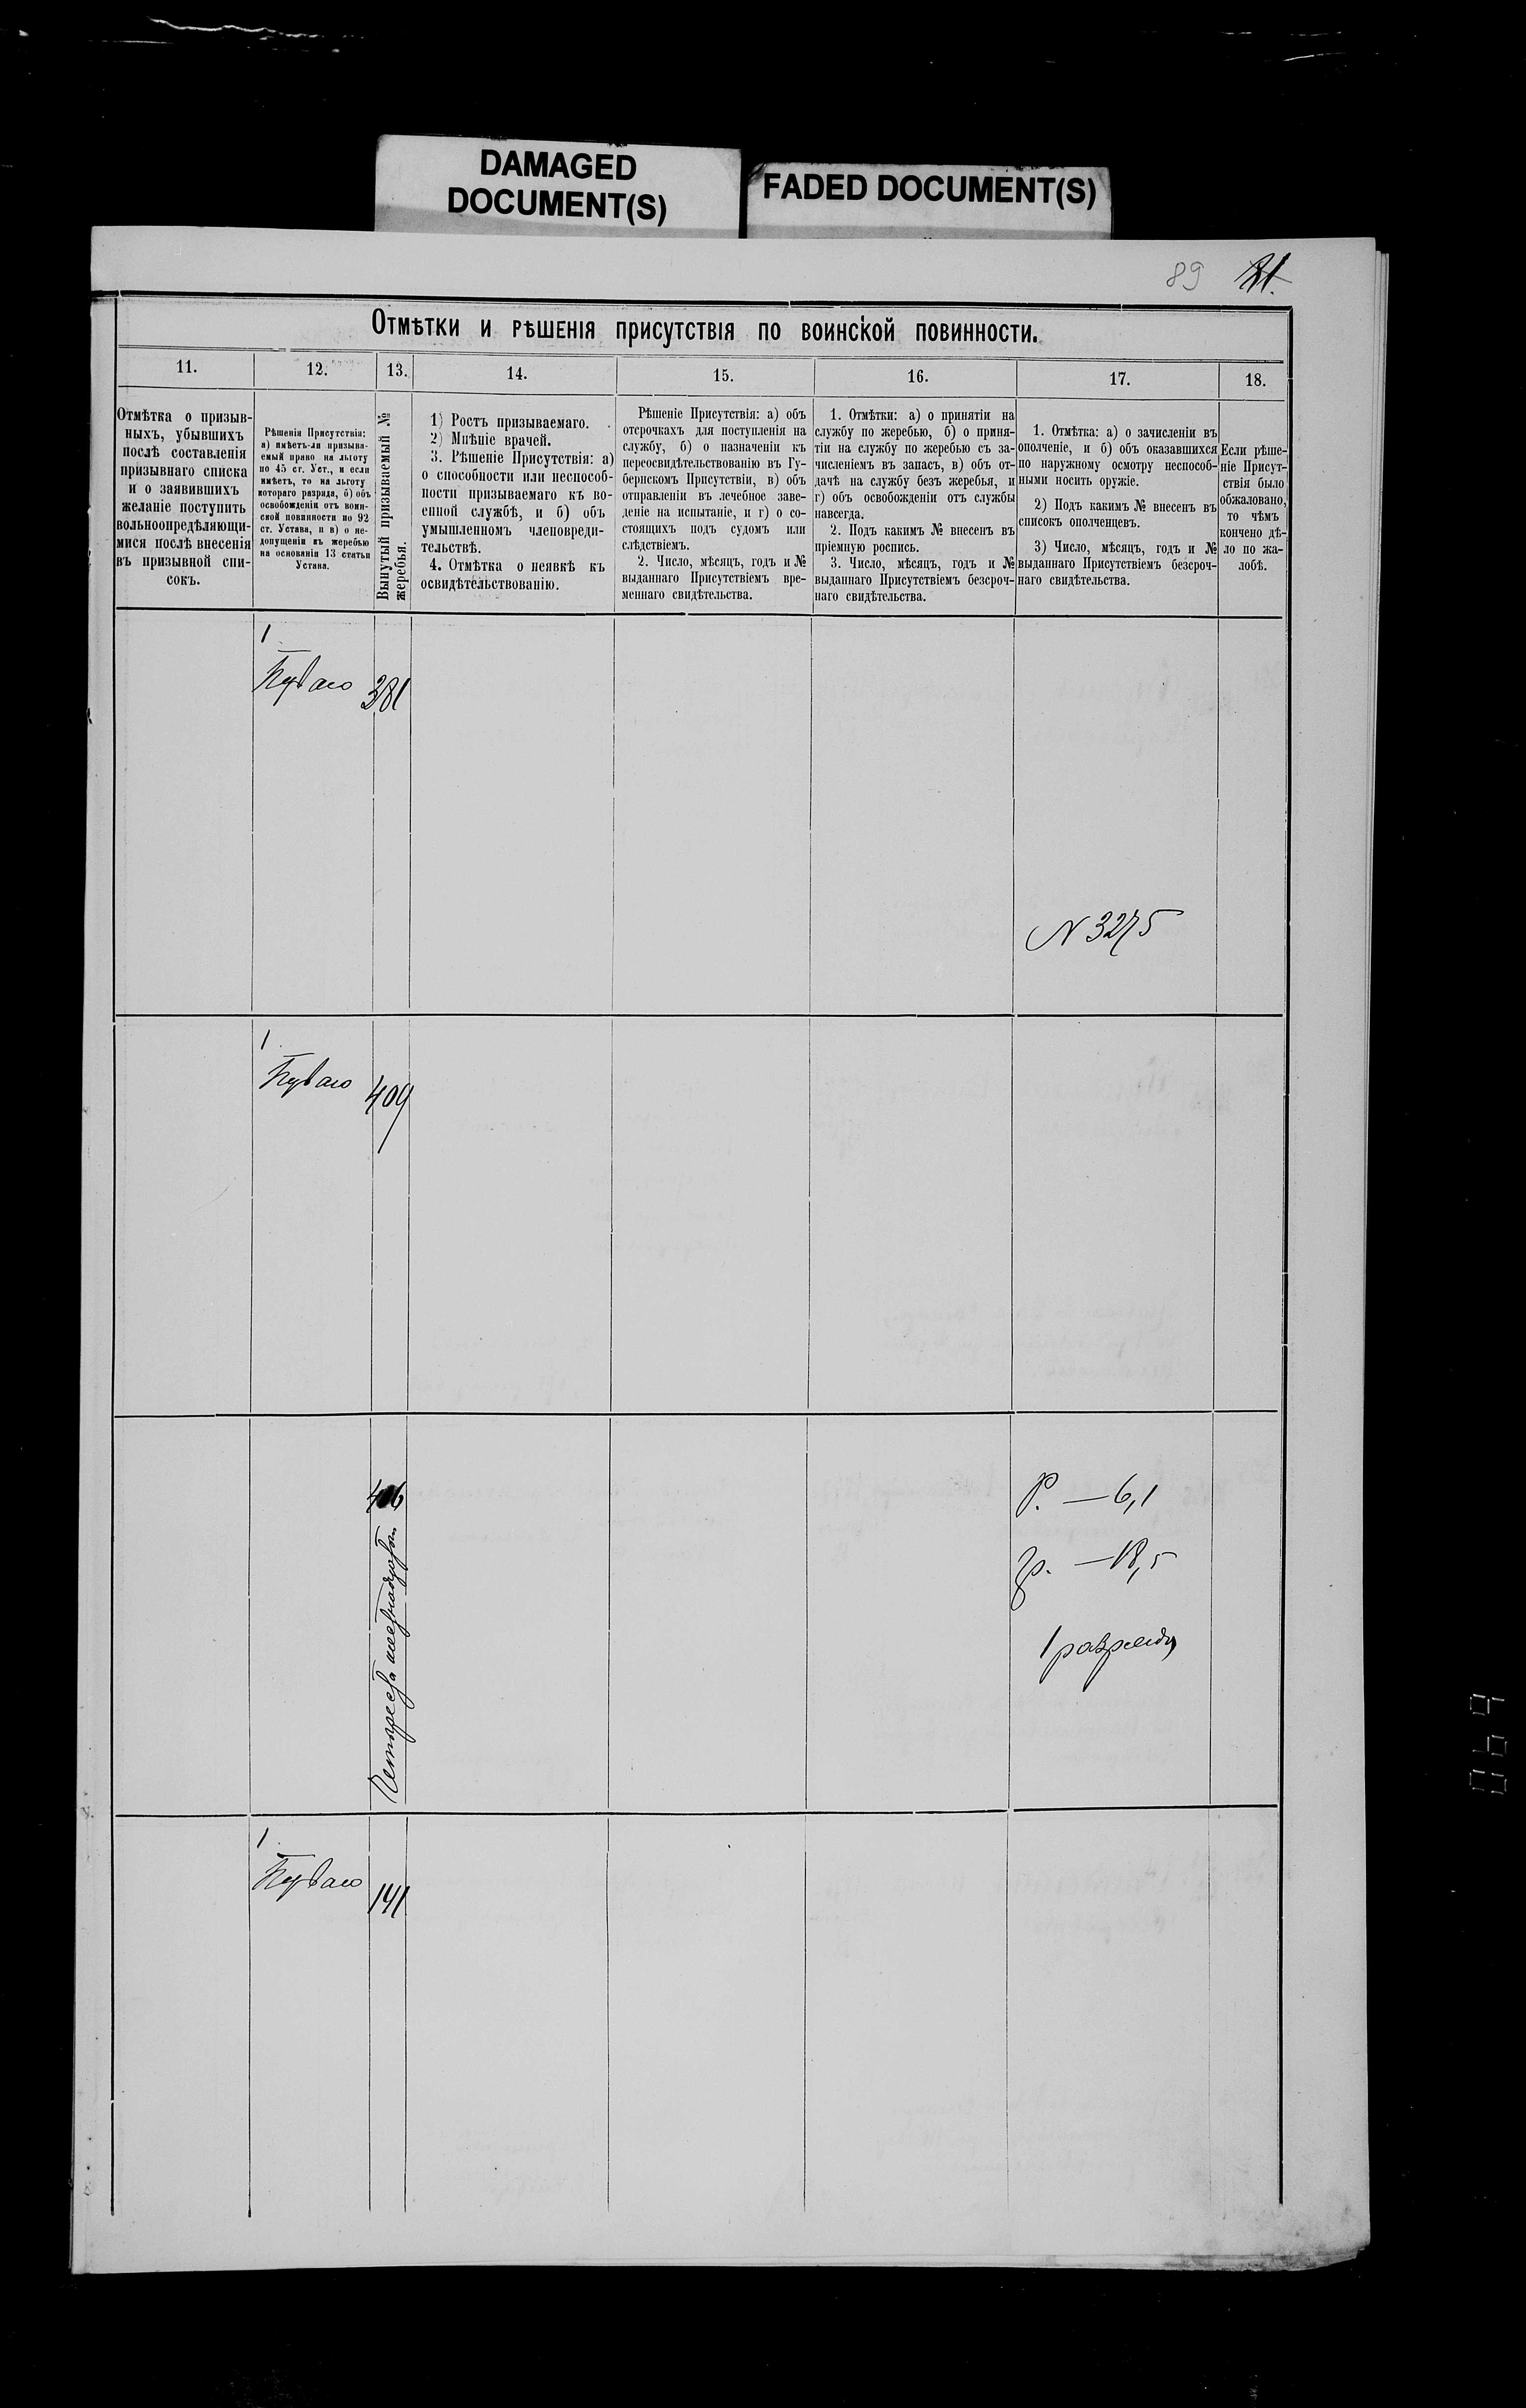 DAMAGED
DOCUMENT(S)
FADED DOCUMENT(S)
89
Отмѣтки и рѣшенія присутствія по воинской повинности.
11.
12.
13.
14.
15.
16.
17.
18.
Отмѣтка о призыв-
ныхъ, убывшихъ
послѣ составленія
призывнаго списка
и о заявившихъ
желаніе поступить
вольноопредѣляющи-
мися послѣ внесенія
въ призывной спи-
сокъ.
Рѣшенія Присутствія:
а) имѣетъ-ли призыва-
емый право на льготу
по 45 ст. Уст., и если
имѣетъ, то на льготу
котораго разряда, б) объ
освобожденіи отъ воин-
ской повинности по 92
ст. Устава, и в) о не-
допущеніи къ жеребью
на основаніи 13 статьи
Устава.
Вынутый призываемый №
жеребья.
1) Ростъ призываемаго.
2) Мнѣніе врачей.
3. Рѣшеніе Присутствія: а)
о способности или неспособ-
ности призываемаго къ во-
енной службѣ, и б) объ
умышленномъ членовреди-
тельствѣ.
4. Отмѣтка о неявкѣ къ
освидѣтельствованію.
Рѣшеніе Присутствія: а) объ
отсрочкахъ для поступленія на
службу, б) о назначеніи къ
переосвидѣтельствованію въ Гу-
бернскомъ Присутствіи, в) объ
отправленіи въ лечебное заве-
деніе на испытаніе, и г) о со-
стоящихъ подъ судомъ или
слѣдствіемъ.
2. Число, мѣсяцъ, годъ и №
выданнаго Присутствіемъ вре-
меннаго свидѣтельства.
1. Отмѣтки: а) о принятіи на
службу по жеребью, б) о приня-
тіи на службу по жеребью съ за-
численіемъ въ запасъ, в) объ от-
дачѣ на службу безъ жеребья, и
г) объ освобожденіи отъ службы
навсегда.
2. Подъ какимъ № внесенъ въ
пріемную роспись.
3. Число, мѣсяцъ, годъ и №
выданнаго Присутствіемъ безсроч-
наго свидѣтельства.
1. Отмѣтка: а) о зачисленіи въ
ополченіе, и б) объ оказавшихся
по наружному осмотру неспособ-
ными носить оружіе.
2) Подъ какимъ № внесенъ въ
списокъ ополченцевъ.
3) Число, мѣсяцъ, годъ и №
выданнаго Присутствіемъ безсроч-
наго свидѣтельства.
Если рѣше-
ніе Присут-
ствія было
обжаловано,
то чѣмъ
кончено дѣ-
ло по жа-
лобѣ.
1
Перваго
381
N 3275
1
Перваго
409
Четыреста шестнадцатый
Р. — 6,1
гр. — 18,5
1 разряда
1
Перваго
141
069